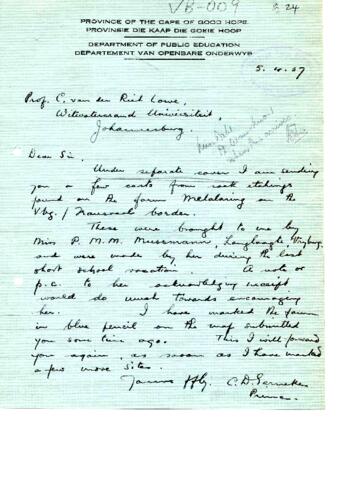 VB-009
B 24
PROVINCE OF THE CAPE OF GOOD HOPE.
PROVINSIE DIE KAAP DIE GOEIE HOOP
DEPARTMENT OF PUBLIC EDUCATION
DEPARTEMENT VAN OPENBARE ONDERWYS
Prof. C. van der Riet Lowe,
Witwatersrand Universiteit,
Johannesburg.
Dear Sir,
Under separate cover I am sending
you a few casts from rock etchings
found on the farm on the
Vbg. / Transvaal border.
These were brought to me by
Miss P. M. M. Mussmann, Vryburg,
and were made by her during the last
short school vacation. A note or
p.c. to her acknowledging receipt
would do much towards encouraging
her. I have marked the farm
in blue pencil on the map submitted
you some time ago. This I will forward
you again, as soon as I have marked
a few more sites.
Yours ffly.